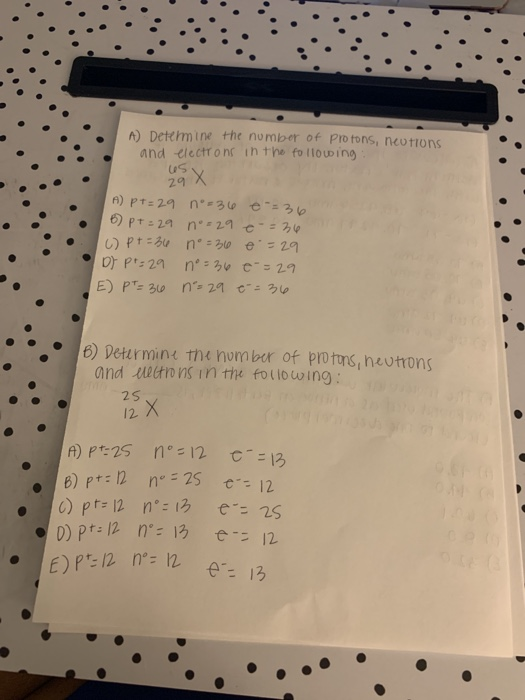 A) Determine the number of protons, neutrons
and electrons in the following:
65
29 X
A) p+=29 n°=36 e-=36
B) p+=29 n°=29 e-=36
C) p+=36 n°=36 e-=29
D) p+=29 n°=36 e-=29
E) p+=36 n°=29 e-=36
B) Determine the number of protons, neutrons
and electrons in the following:
25
12 X
A) p+=25 n°=12 e-=13
B) p+=12 n°=25 e-=12
C) p+=12 n°=13 e-=25
D) p+=12 n°=13 e-=12
E) p+=12 n°=12 e-=13